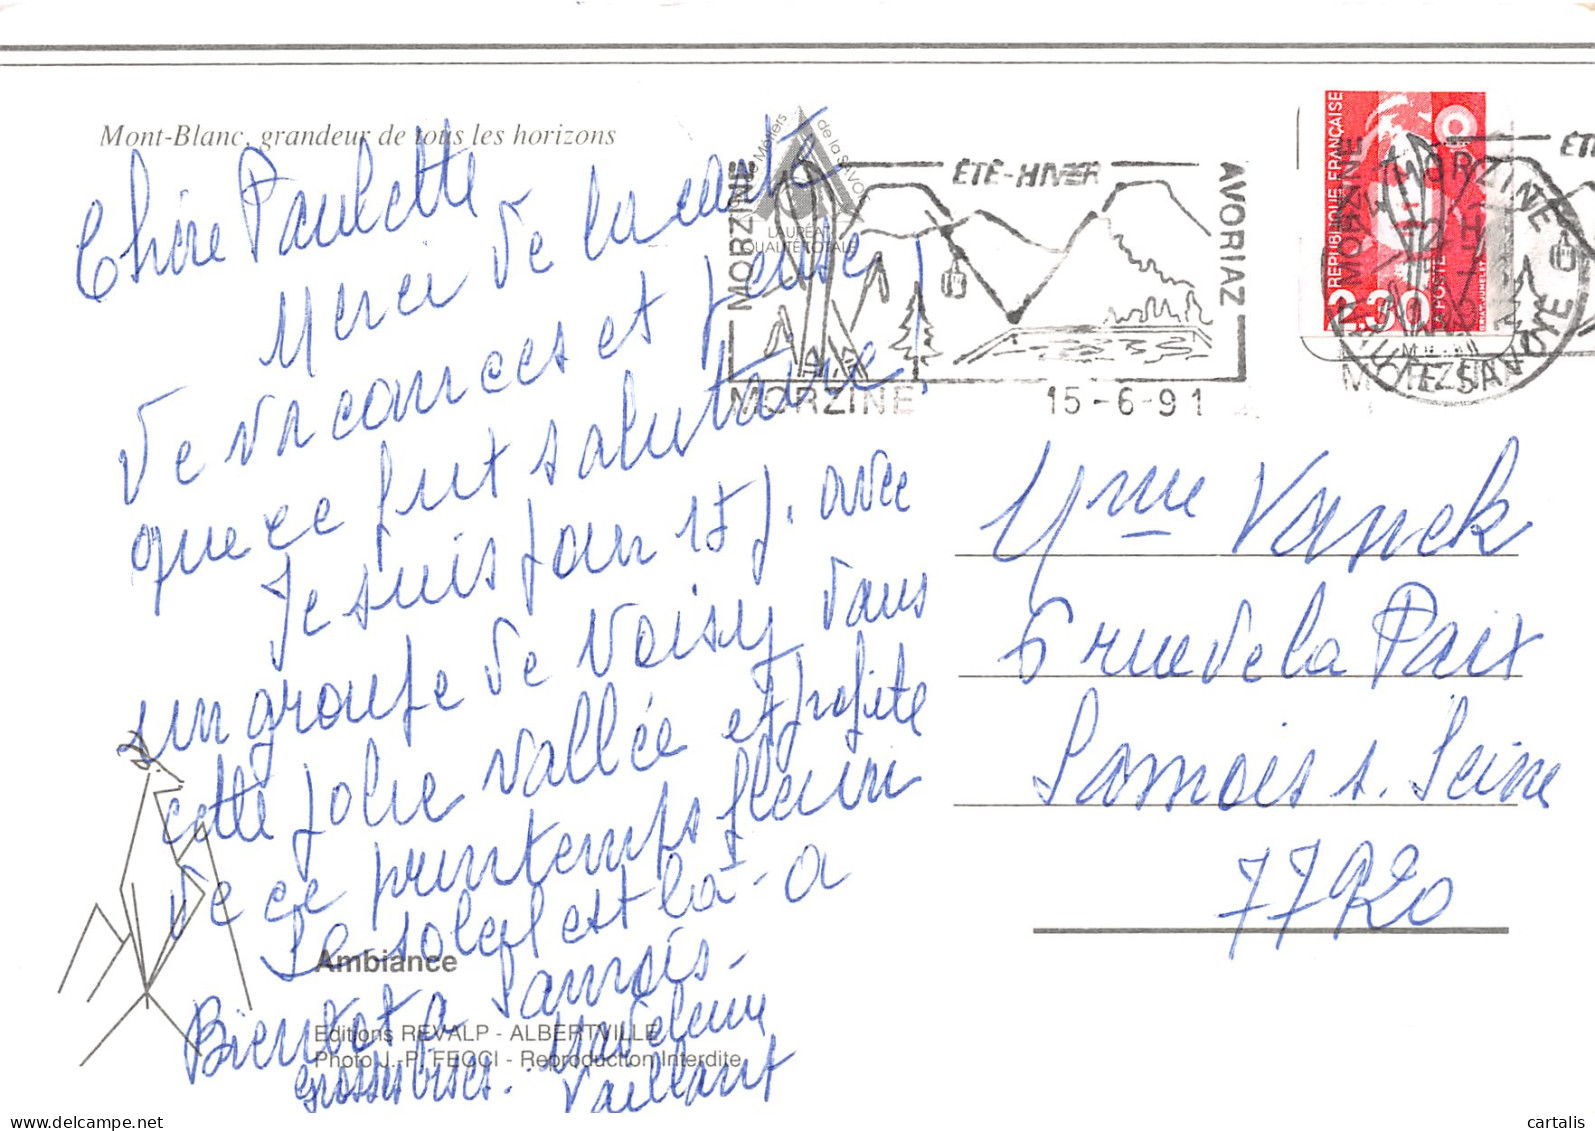 Mont-Blanc, grandeur de tous les horizons
Chère Paulette
Merci de la carte
de vacances et pense
que ce fut salutaire!
Je suis pour 15 j. avec
un groupe de Noisy dans
cette jolie vallée et profite
de ce printemps fleuri
Le soleil est là - A
Bientot a Samois -
Grosses bises. Madeleine
Vaillant
Ambiance
Editions REVALP - ALBERTVILLE
Photo J.-P. FEGCI - Reproduction Interdite
Les Métiers de la SAVOIE
LAURÉAT
QUALITÉ TOTALE
MORZINE
ÉTÉ-HIVER
AVORIAZ
MORZINE 15-6-91
RÉPUBLIQUE FRANÇAISE
2,30
POSTE
MORZINE
HAUTE SAVOIE
MORZINE
ÉTÉ
MORZINE
Mme Vanek
6 rue de la Paix
Samois s. Seine
77920
cartalis